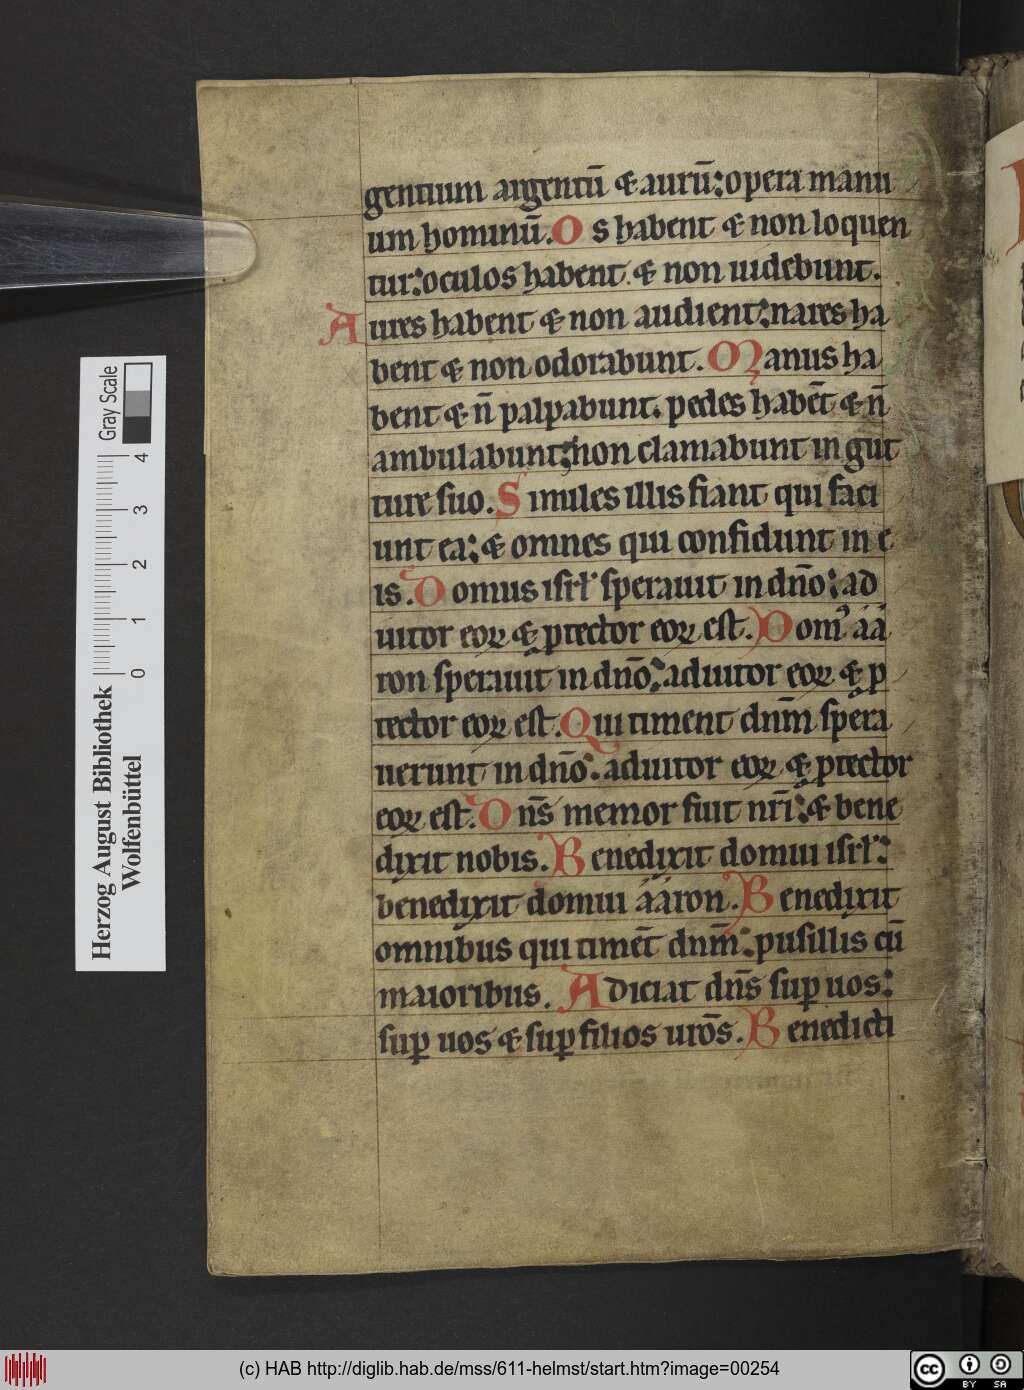 gentium argentū & aurū: opera manu
um hominū. Os habent & non loquen
tur: oculos habent & non uidebunt.
Aures habent & non audient: nares ha
bent & non odorabunt. Manus ha
bent & n̄ palpabunt. pedes habēt & n̄
ambulabunt: non clamabunt in gut
ture suo. Similes illis fiant qui faci
unt ea: & omnes qui confidunt in e
is. Domus isrl̄ sperauit in dn̄o: ad
iutor eoꝝ & ꝓtector eoꝝ est. Domꝰ áá
ron sperauit in dn̄o: adiutor eoꝝ & ꝓ
tector eoꝝ est. Qui timent dnm̄ spera
uerunt in dn̄o: adiutor eoꝝ & ꝓtector
eoꝝ est. Dn̄s memor fuit nr̄i: & bene
dixit nobis. Benedixit domui isrl̄:
benedixit domui ááron. Benedixit
omnibus qui timēt dnm̄: pusillis cū
maioribus. Adiciat dn̄s suꝑ uos:
suꝑ uos & suꝑ filios urōs. Benedicti
Herzog August Bibliothek
Wolfenbüttel
0 1 2 3 4
Gray Scale
(c) HAB http://diglib.hab.de/mss/611-helmst/start.htm?image=00254
cc BY SA